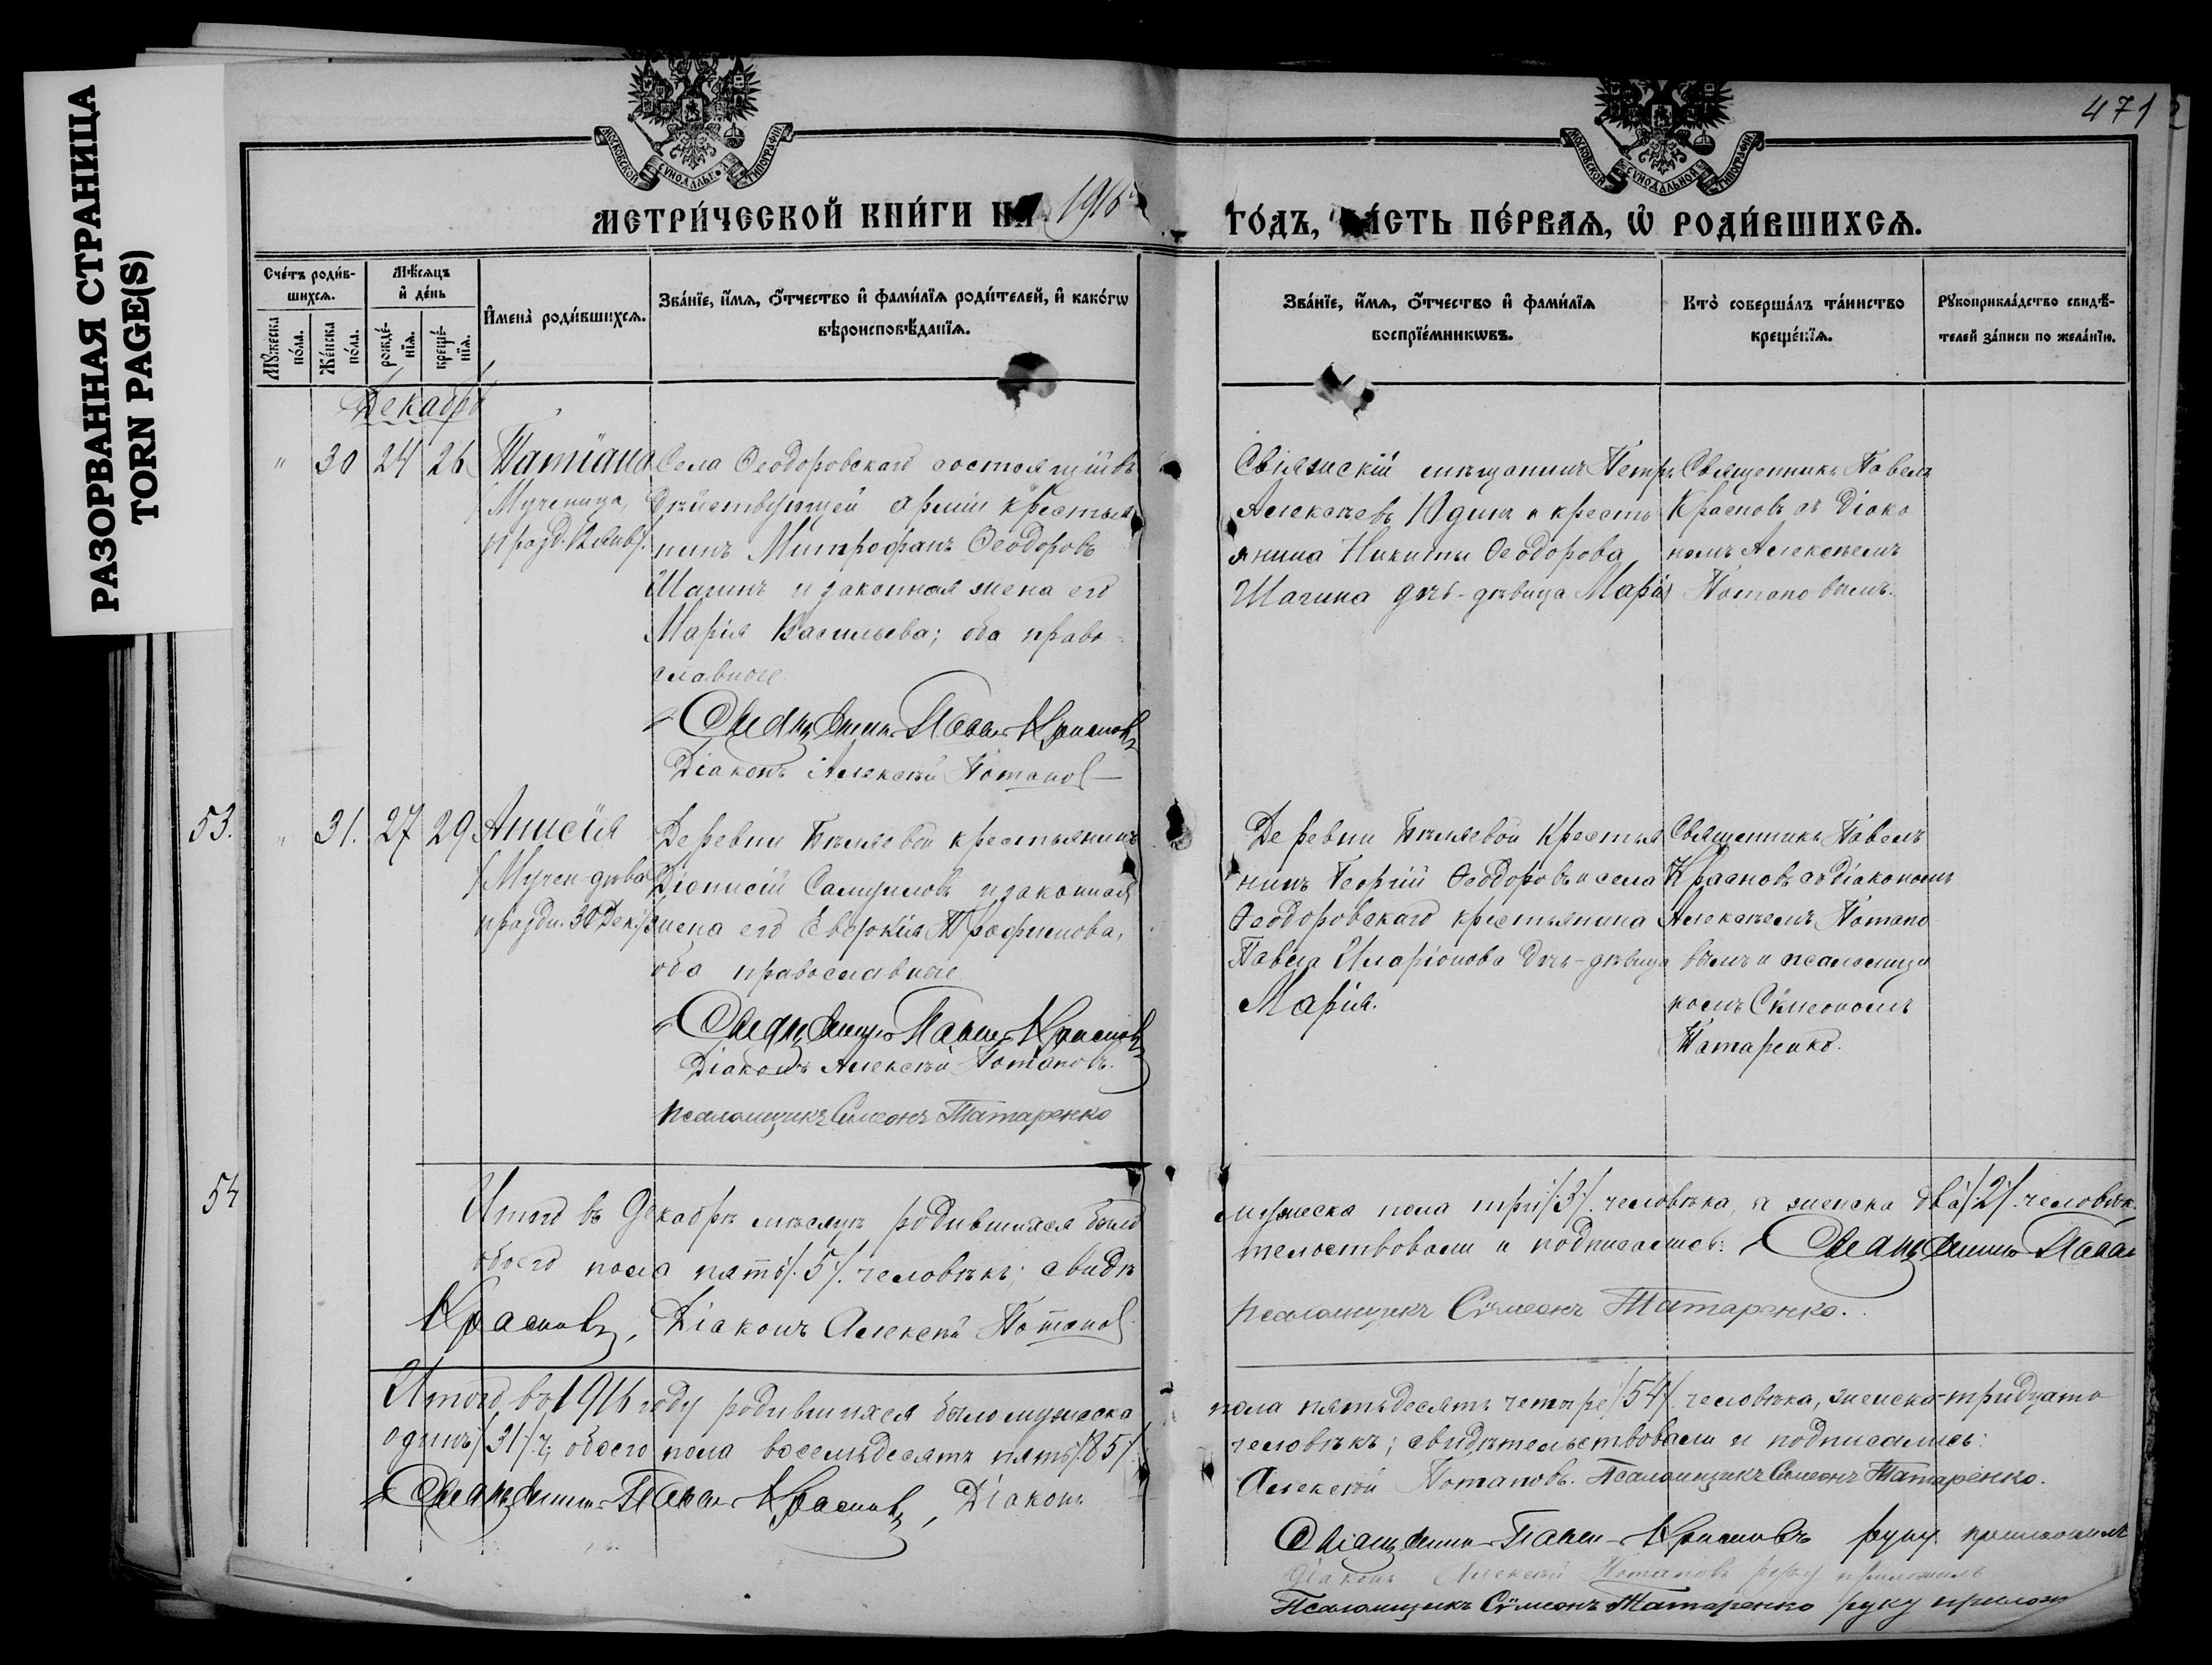 РАЗОРВАННАЯ СТРАНИЦА
TORN PAGE(S)
471
МОСКОВСКОЙ СѴНОДАЛЬНОЙ ТИПОГРАФІИ
МОСКОВСКОЙ СѴНОДАЛЬНОЙ ТИПОГРАФІИ
МЕТРИ́ЧЕСКОЙ КНИ́ГИ НА 1916
ГО́ДЪ, ЧА́СТЬ ПЕ́РВАѦ, Ѡ҆ РОДИ́ВШИХСѦ.
Сче́тъ роди́в-
шихсѧ.
Мꙋ́жеска
по́ла.
Же́нска
по́ла.
Мѣ́сѧцъ
и҆ де́нь
рожде́-
нїѧ.
креще́-
нїѧ.
И҆мена̀ роди́вшихсѧ.
Зва́нїе, и҆́мѧ, о҆́тчество и҆ фами́лїѧ роди́телей, и҆ како́гѡ
вѣроисповѣ́данїѧ.
Зва́нїе, и҆́мѧ, о҆́тчество и҆ фами́лїѧ
воспрїе́мникѡвъ.
Кто̀ соверша́лъ та́инство
креще́нїѧ.
Рꙋкоприкла́дство свидѣ́-
телей за́писи по жела́нїю.
Декабрь
" 30 24 26 Татіана
/Мученица,
празд. 12 янв/.
Села Ѳеодоровскаго состоящій въ
дѣйствующей арміи крестья
нинъ Митрофанъ Ѳеодоровъ
Шагинъ и законная жена его
Марія Васильева; оба право-
славные.
Священникъ Павелъ Красновъ
Діаконъ Алексѣй Потаповъ
Свіяжскій мѣщанинъ Петръ
Алексѣевъ Юдинъ и кресть
янина Никиты Ѳеодорова
Шагина дчь-дѣвица Марія
Священникъ Павелъ
Красновъ съ Діако
номъ Алексѣемъ
Потаповымъ.
53. " 31. 27 29 Анисія
/Мучен-дѣва
праздн. 30 Дек./
Деревни Бѣляевой крестьянинъ
Діонисій Самуиловъ и законная
жена его Евдокія Трофимова,
оба православные
Священникъ Павелъ Красновъ
Діаконъ Алексѣй Потаповъ.
Псаломщикъ Симеонъ Татаренко
Деревни Бѣляевой Крестья
нинъ Георгій Ѳеодоровъ и села
Ѳеодоровскаго крестьянина
Павла Иларіонова дчь-дѣвица
Марія.
Священникъ Павелъ
Красновъ съ діакономъ
Алексѣемъ Потапо
вымъ и псаломщи
комъ Сѵмеономъ
Татаренко.
54
Итого въ Декабрѣ мѣсяцѣ родившихся было
мужеска пола три /3/. человѣка, а женска два /2/. человѣк.
обоего пола пять /5/. человѣкъ; свидѣ
тельствовали и подписались: Священникъ Павелъ
Красновъ, Діаконъ Алексѣй Потаповъ
Псаломщикъ Сѵмеонъ Татаренко.
Итого въ 1916 году родившихся было мужеска
пола пятьдесятъ четыре /54/. человѣка, женска-тридцать
одинъ /31/. ч; обоего пола восемьдесятъ пять /85/.
человѣкъ; свидѣтельствовали и подписались:
Священникъ Павелъ Красновъ, Діаконъ
Алексѣй Потаповъ. Псаломщикъ Симеонъ Татаренко.
Священникъ Павелъ Красновъ руку приложилъ
Діаконъ Алексѣй Потаповъ руку приложилъ
Псаломщикъ Сѵмеонъ Татаренко руку прилож